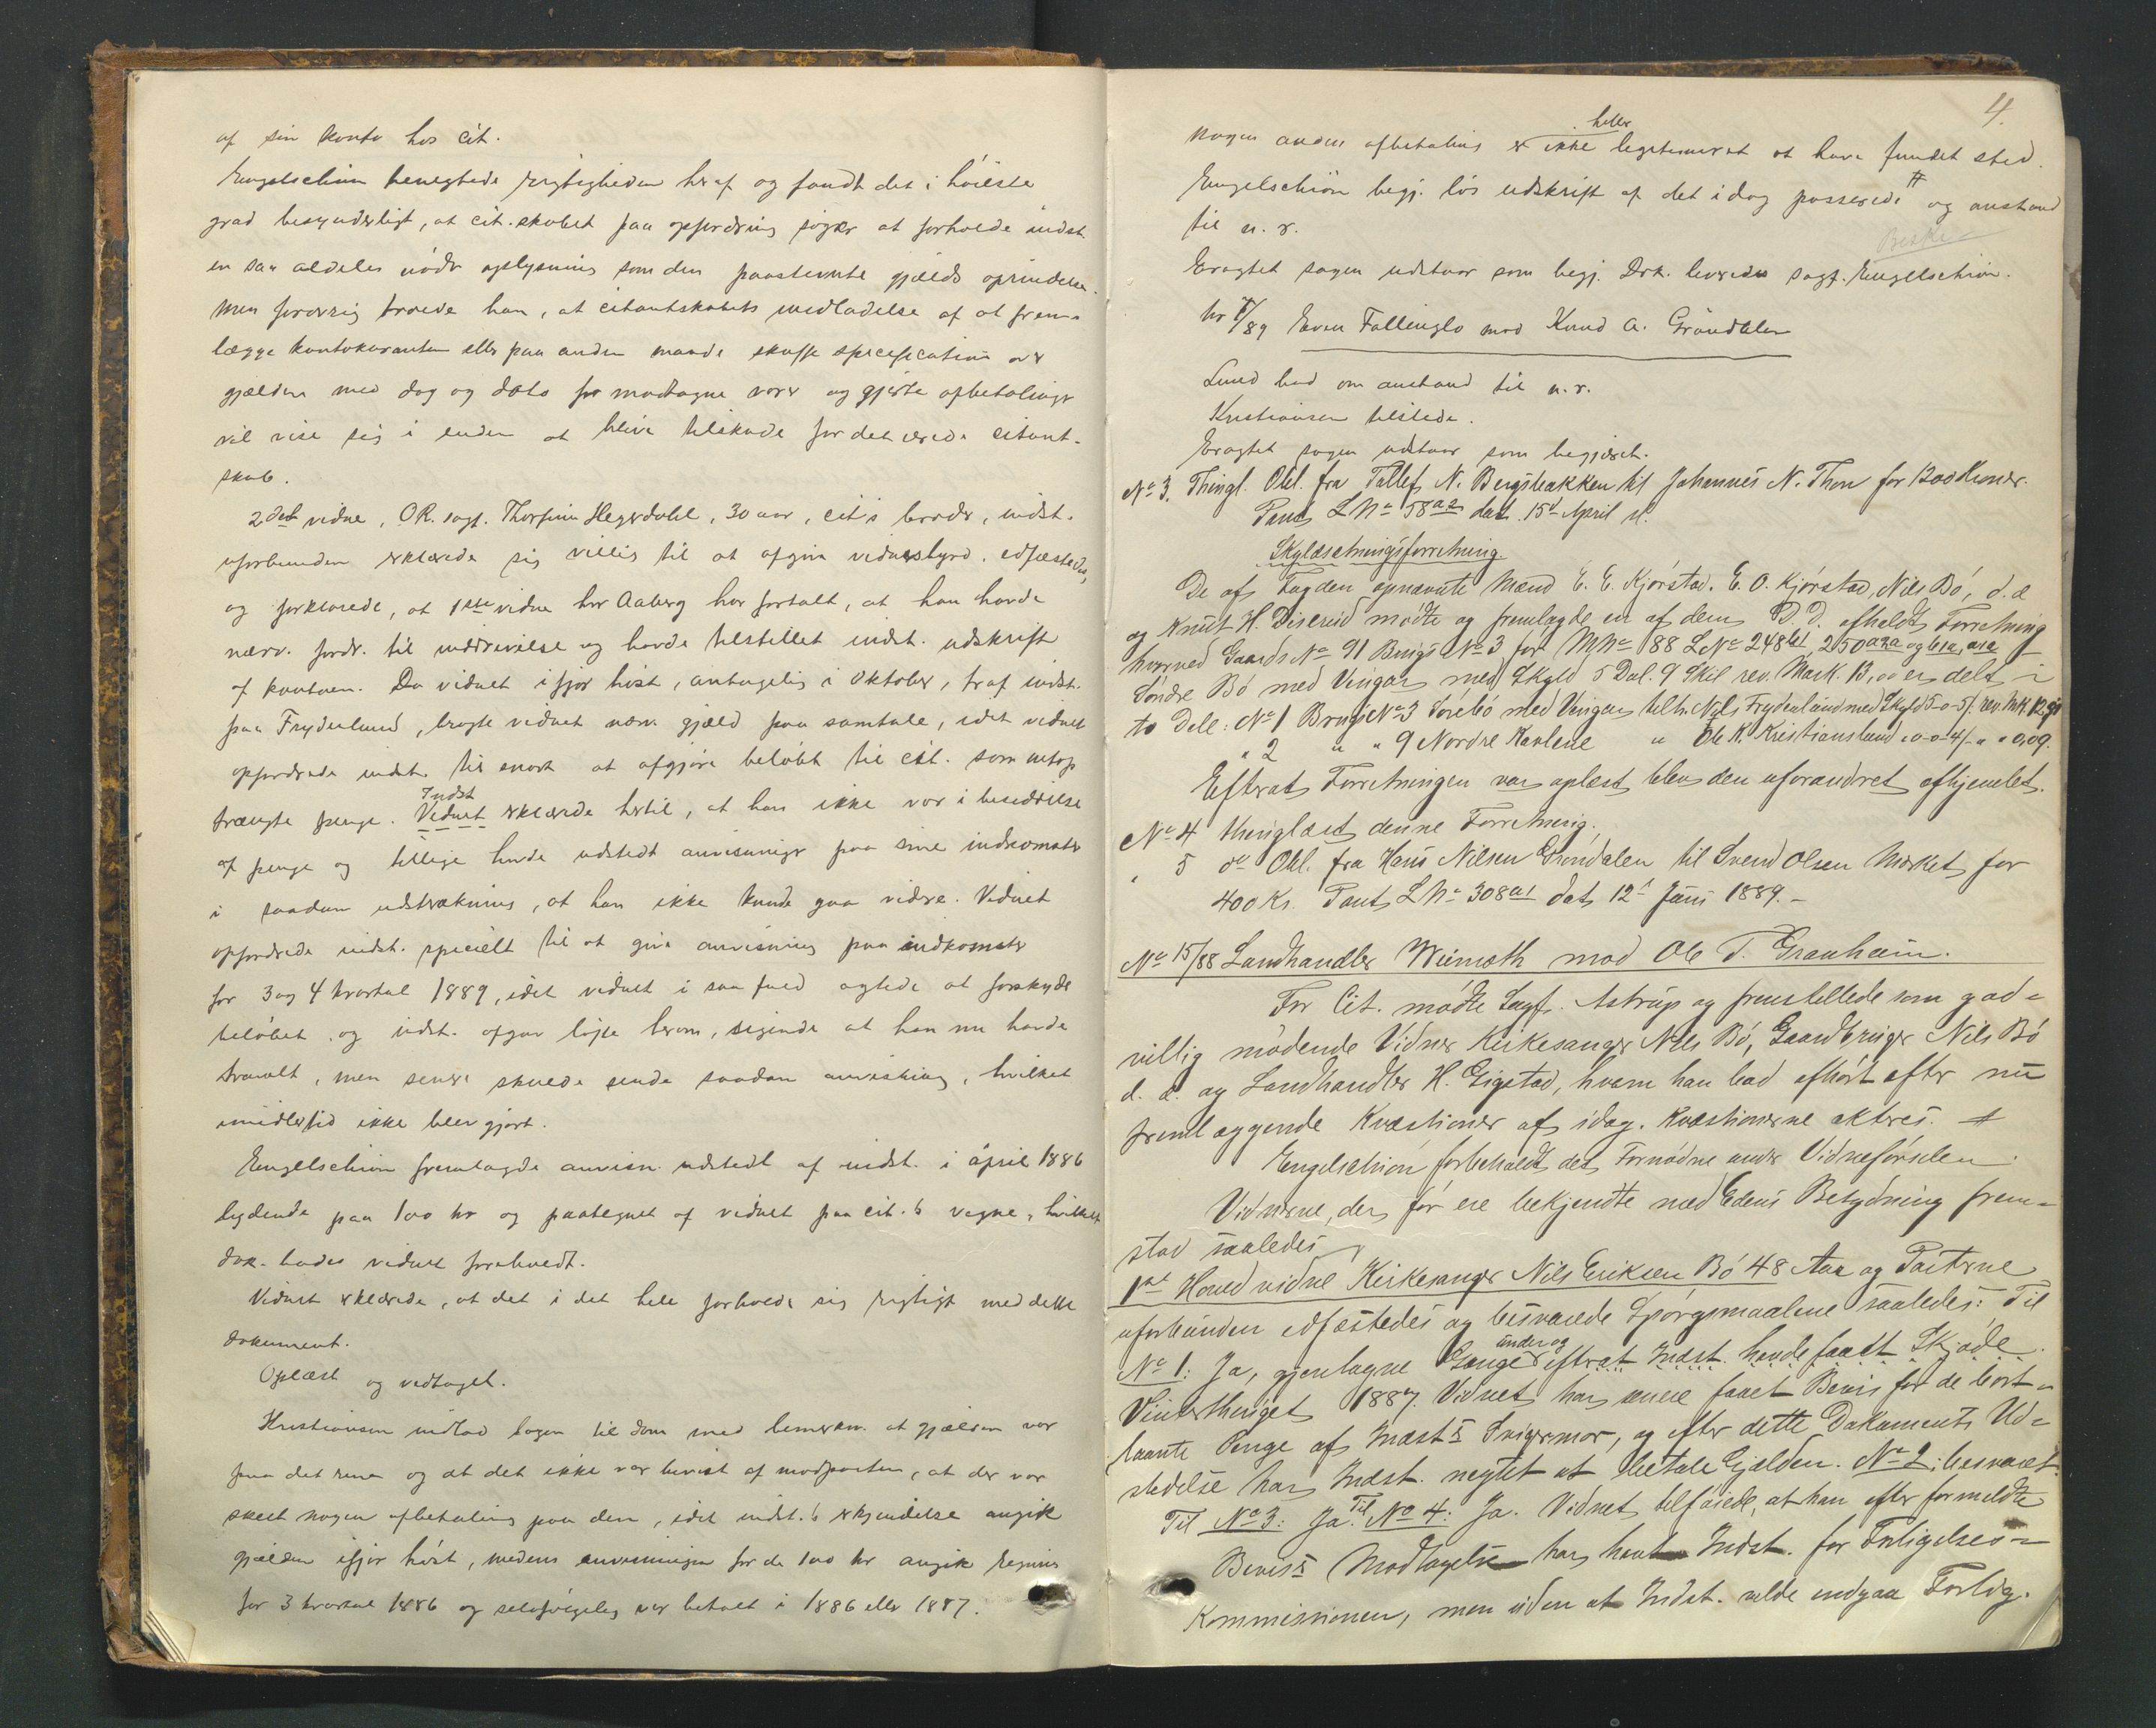 af sin konto hos cit.
Engelschiøn benegtede rigtigheden heraf og fandt det i høieste
grad besynderligt, at cit.skabet paa opfordring søger at forholde indst.
en saa aldeles nødv. oplysning som den paastevnte gjælds oprindelse.
Men forøvrig troede han, at citantskabets undladelse af at frem-
lægge kontokuranten eller paa anden maade skaffe specification over
gjælden med dag og dato for modtagne varer og gjorte afbetalinger
vil vise sig i enden at blive tilskade for det ærede citant-
skab.
2det vidne, OR. sagf. Thorfinn Hegerdahl, 30 aar, cit.s broder, indst.
uforbunden erklærede sig villig til at afgive vidnesbyrd, edfæstedes,
og forklarede, at 1ste vidne hr Aaberg har fortalt, at han havde
nærv. fordr. til inddrivelse og havde tilstillet indst. udskrift
af kontoen. Da vidnet ifjor høst, antagelig i Oktober, traf indst.
paa Frydenlund, bragte vidnet nærv. gjæld paa samtale, idet vidnet
opfordrede indst. til snart at afgjøre beløbet til cit. som netop
Indst
trængte penge. Vidnet erklærede hertil, at han ikke var i besiddelse
af penge og tillige havde udstedt anvisninger paa sine indkomster
i saadan udstrækning, at han ikke kunde gaa videre. Vidnet
opfordrede indst. specielt til at give anvisning paa indkomster
for 3 og 4 kvartal 1889, idet vidnet i saa fald agtede at forskyde
beløbet, og indst. afgav løfte herom, sigende at han nu havde
travelt, men senere skulde sende saadan anvisning, hvilket
imidlertid ikke blev gjort.
Engelschiøn fremlagde anvisn. udstedt af indst. i april 1886
lydende paa 100 kr og paategnet af vidnet paa cit.s vegne, hvilket
dok. hades vidnet foreholdt.
Vidnet erklærede, at det i det hele forholdt sig rigtigt med dette
dokument.
Oplæst og vedtaget.
Kristiansen indlod sagen til dom med bemerkn. at gjælden var
paa det rene og at det ikke var bevist af modparten, at der var
skeet nogen afbetaling paa den, idet indst.s erkjendelse angik
gjælden ifjor høst, medens anvisningen for de 100 kr angik regning
for 3 kvartal 1886 og selvfølgelig var betalt i 1886 eller 1887.
4.
heller
nogen anden afbetaling er ikke legitimeret at have fundet sted.
Engelschiøn begj. løs udskrift af det idag passerede # og anstand
til n. r.
Eragtet sagen udstaar som begj. Dok. leverede sagf. Engelschiøn.
Nr 7/89 Even Fallinglo mod Knud A. Grøndalen
Lund bad om anstand til n. r.
Kristiansen tilstede.
Eragtet sagen udstaar som begjæret.
No 3. Thingl. Obl. fra Tollef N. Bergsbakken til Johannes N. Thon for 1200 Kroner.
Pant LNo 58aa dat. 15d April d.A.
Skyldsætningsforretning.
De af Fogden opnævnte Mænd E. E. Kjørstad. E. O. Kjørstad, Nils Bø, d. æ
og Knut H. Diserud mødte og fremlagde en af dem D. D. afholdt Forretning
hvorved Gaards No 91 Brugs No 3 før MNo 88 LNo 248b1, 250a2a og b1a, a1a
Søndre Bø med Vingar med Skyld 5 Dal. 9 Skil rev. Mark. 13,00 er delt i
to Dele: No 1 Brugs No 3 Sørebø med Vingar tilh. Nils Frydenlund med Skyld 5-0-5/. rev. Mk 12,91
" 2 " " 9 Nordre Havlene " Ole K. Kristiansland " 0-0-4/- " " 0,09.
Efterat Forretningen var oplæst blev den uforandret afhjemlet.
No 4 thinglæst denne Forretning.
" 5 do Obl. fra Hans Nilsen Grøndalen til Svend Olsen Mørket for
400 Kr. Pant LNo 308a1 dat 12t Juni 1889.-
No 15/88 Landhandler Wiemoth mod Ole T. Granheim.
For Cit. mødte Sagf. Astrup og fremstillede som god-
villig mødende Vidner Kirkesanger Nils Bø, Gaardbruger Nils Bø
d. æ. og Landhandler H. Gigstad, hvem han bad afhørt efter nu
fremlæggende Kvæstioner af idag. Kvæstionerne akteres. #
Engelschiøn forbeholdt det Fornødne under Vidneførselen.
Vidnerne, der før ere bekjendte med Edens Betydning frem-
stod saaledes
1ste Hovedvidne Kirkesanger Nils Eriksen Bø 48 Aar og Parterne
uforbunden edfæstedes og besvarede Spørgsmaalene saaledes: Til
under og
No 1: Ja, gjentagne Gange efterat Indst. havde faaet Skjøde
Vintertinget 1887. Vidnet har senere faaet Bevis for de bort-
laante Penge af Indst.s Svigermor, og efter dette Dokuments Ud-
stedelse har Indst. negtet at betale Gjælden. No 2: besvaret.
Til No 3: Ja. Til No 4: Ja. Vidnet tilføiede, at han efter formeldte
Bevis's Modtagelse har havt Indst. for Forligelses-
Kommissionen, men uden at Indst. vilde indgaa Forlig.